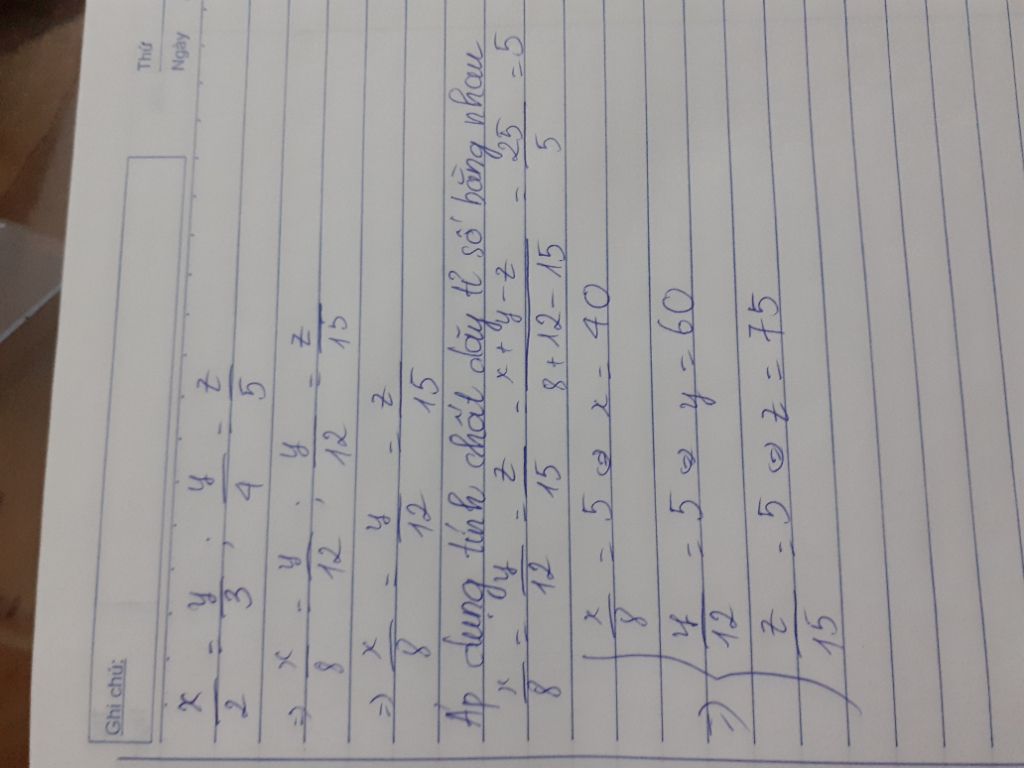 Thứ
Ngày
Ghi chú:
x/2 = y/3 ; y/4 = z/5
=> x/8 = y/12 ; y/12 = z/15
=> x/8 = y/12 = z/15
Áp dụng tính chất dãy tỉ số bằng nhau
x/8 = y/12 = z/15 = x+y-z/8+12-15 = 25/5 = 5
x/8 = 5 ⇔ x = 40
=> { y/12 = 5 ⇔ y = 60
z/15 = 5 ⇔ z = 75